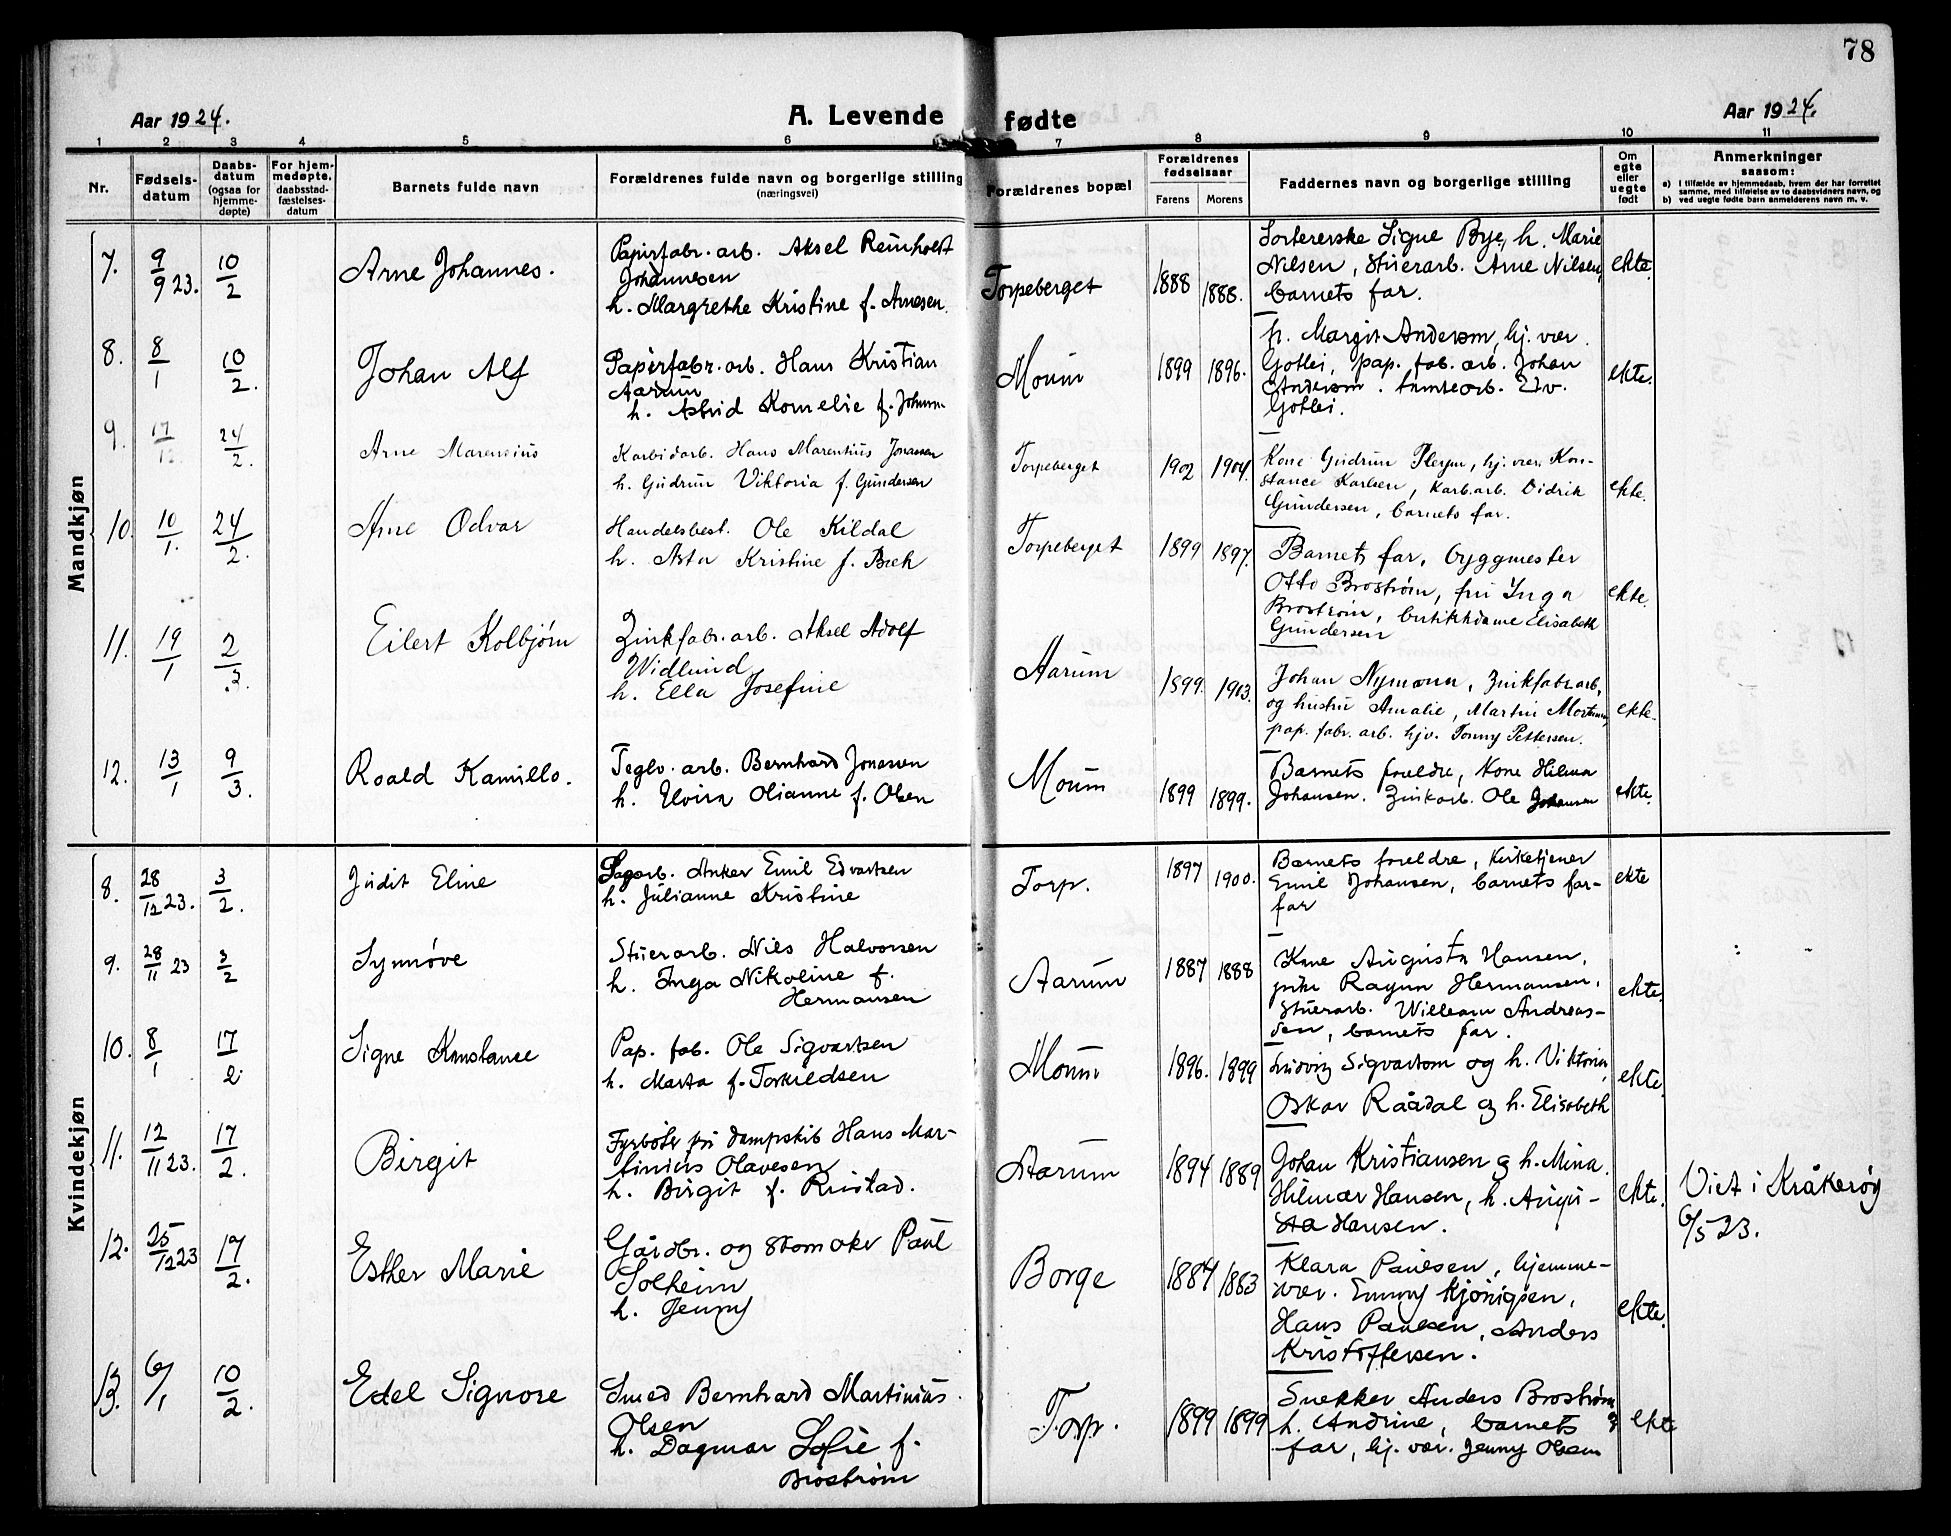 78
Aar 1924.
A. Levende fødte
Aar 1924.
1 2 3 4 5 6 7 8 9 10 11
Nr.
Fødsels-
datum
Daabs-
datum
(ogsaa for
hjemme-
døpte)
For hjem-
medøpte,
daabsstad-
fæstelses-
datum
Barnets fulde navn
Forældrenes fulde navn og borgerlige stilling
(næringsvei)
Forældrenes bopæl
Forældrenes
fødselsaar
Farens Morens
Faddernes navn og borgerlige stilling
Om
egte
eller
uegte
født
Anmerkninger
saasom:
a) I tilfælde av hjemmedaab, hvem der har forrettet
samme, med tilføielse av to daabsvidners navn, og
b) ved uegte fødte barn anmelderens navn m. v.
Mandkjøn
7. 9/9 23. 10/2 Arne Johannes.
Papirfabr. arb. Aksel Reinholdt
Johannesen
h. Margrethe Kristine f. Arnesen.
Torpeberget 1888 1888.
Sortererske Signe Bye, h. Marie
Nilsen, stuerarb. Arne Nilsen,
barnets far.
ekte.
8. 8/1 10/2. Johan Alf
Papirfabr. arb. Hans Kristian
Aarum
h. Astrid Kornelie f. Johann
Moum 1899 1896.
h. Margit Anderssm, hj. vær.
Gotlei, pap. fab. arb. Johan
Anderssm. tomtearb. Edv.
Gotlei.
ekte.
9. 17/12 24/2. Arne Marensius
Karbidarb. Hans Marentius Jonassen
h. Gudrun Viktoria f. Gundersen
Torpeberget 1902 1904.
Kone Gudrun, hj. vær. Kon-
stance Karlsen, karb.arb. Didrik
Gundersen, barnets far.
ekte.
10. 10/1. 24/2. Arne Odvar
Handelsbest. Ole Kildal
h. Asta Kristine f. Bæk
Torpeberget 1899 1897.
Barnets far, byggmester
Otto Brostrøm, fru Inga
Brostrøm, butikkdame Elisabeth
Gundersen
ekte.
11. 19/1 2/3. Eilert Kolbjørn
Zinkfabr. arb. Aksel Adolf
Widlund
h. Ella Josefine
Aarum 1899. 1903.
Johan Nymann, Zinkfabr arb,
og hustru Amalie, Martin Mortensen,
pap. fabr. arb. hjv. Tonny Pettersen.
ekte.
12. 13/1 9/3. Roald Kamillo.
Teglv. arb. Bernhard Jonassen
h. Elvira Olianne f. Olsen
Moum 1899 1899.
Barnets foreldre, Kone Hilma
Johansen. Zinkarb. Ole Johansen
ekte.
Kvindekjøn
8. 28/12 23. 3/2. Judit Eline
Sagarb. Anker Emil Edvartsen
h. Julianne Kristine
Torp. 1897 1900.
Barnets foreldre, Kirketjener
Emil Johansen, barnets far-
far
ekte
9. 28/11 23 3/2 Synnøve
Stuerarb. Nils Halvorsen
h. Inga Nikoline f.
Hermansen
Aarum 1887 1888
Kone Augusta Hansen,
pike Ragna Hermansen,
stuerarb. William Andreas-
sen, barnets far.
ekte.
10. 8/1 17/2 Signe Konstance
Pap. fab. Ole Sigvartsen
h. Marta f. Torkildsen
Moum 1896. 1899
Ludvig Sigvartsen og h. Viktoria,
Oskar Raadal og h. Elisabeth
ekte.
11. 12/11 23. 17/2. Birgit
Fyrbøter på dampskib Hans Mar-
tinius Olavesen
h. Birgit f. Rustad.
Aarum 1894 1889
Johan Kristiansen og h. Mina.
Hilmar Hansen, h. Augu-
sta Hansen.
ekte.
Viet i Kråkerøy
6/5 23.
12. 25/12 23 17/2. Esther Marie
Gårdbr. og stenoker Paul
Solheim
h. Jenny
Borge 1884 1883
Klara Paulsen, hjemme-
vær. Emmy Kjønigsen,
Hans Paulsen, Anders
Kristoffersen.
ekte.
13. 6/1 10/2. Edel Signore
Smed Bernhard Martinius
Olsen
h. Dagmar Sofie f.
Brostrøm
Torp. 1899 1899
Snekker Anders Brostrøm og
h. Andrine, barnets
far, hj. vær. Jenny Olsen
ekte